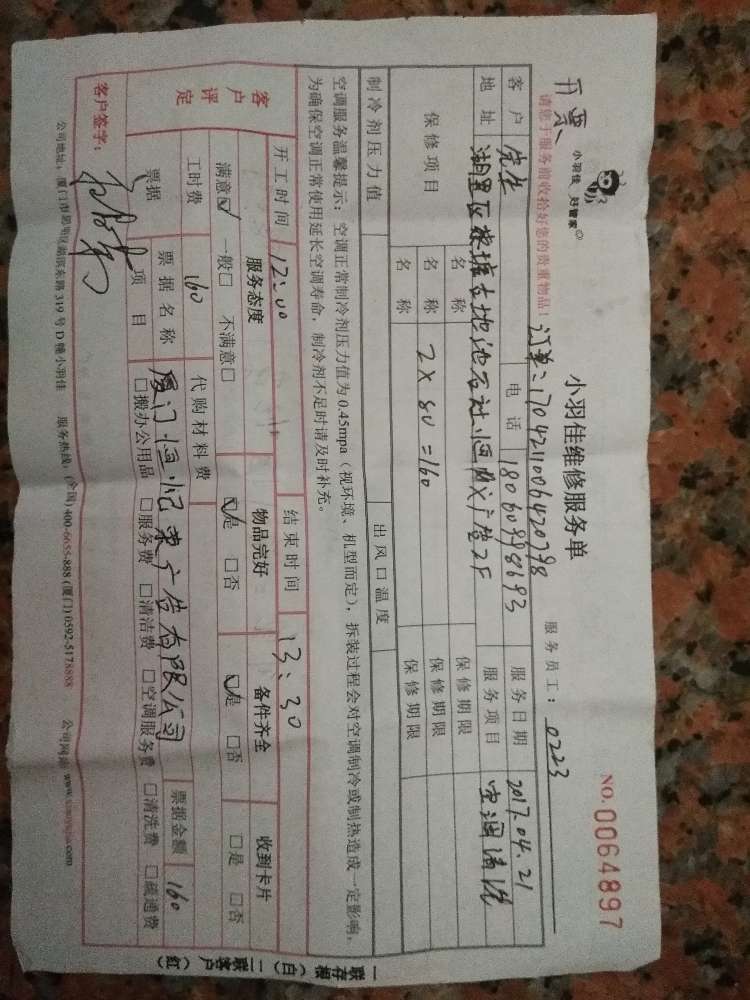 开票
小羽佳 好管家
小羽佳维修服务单
NO.0064897
请您于服务前收拾好您的贵重物品!
订单:1704211006420798
服务员工:0223
客户 先生 电话 18060998693 服务日期 2017.04.21
地址 湖里区 池石社 2F 服务项目 空调清洗
保修项目 名称 保修期限
名称 2×80=160 保修期限
名称 保修期限
制冷剂压力值 出风口温度
空调服务温馨提示:空调正常制冷剂压力值为0.45mpa(视环境、机型而定),拆装过程会对空调制冷或制热造成一定影响,
为确保空调正常使用延长空调寿命,制冷剂不足时请及时补充。
开工时间 12:00 结束时间 13:30
客户评定 服务态度 物品完好 备件齐全 收到卡片
满意☑ 一般□ 不满意□ ☑是 □否 ☑是 □否 □是 □否
工时费 160 代购材料费
票据 票据名称 厦门恒 广告有限公司 票据金额 160
项目 □搬办公用品 □服务费 □清洁费 □空调服务费 □清洗费 □疏通费
客户签字:
公司地址:厦门市思明区湖滨东路319号D幢小羽佳 服务热线:(全国)400-6655-888 (厦门)0592-5178888 公司网站:www.xiaoyujia.com
一联存根(白) 二联客户(红)